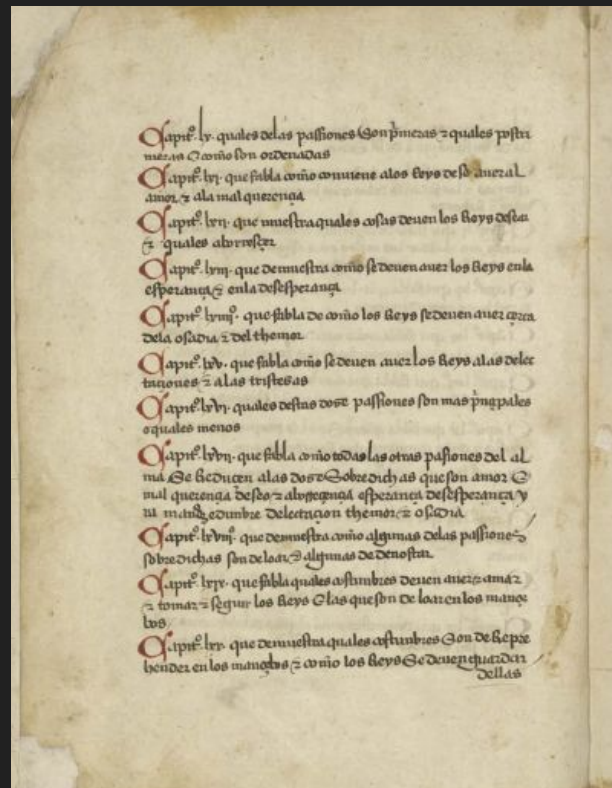 Capitº. lx. quales delas passiones son p̃meras ⁊ quales postri
meras E com̃o son ordenadas
Capitº. lxi. que fabla com̃o conuiene alos Reys de se auer al
amor ⁊ ala mal querença
Capitº. lxii. que muestra quales cosas deuen los Reys desear
⁊ quales aborrosçer
Capitº. lxiii. que demuestra com̃o se deuen auer los Reys enla
esperança ⁊ enla desesperança
Capitº. lxiiiiº. que fabla de com̃o los Reys se deuen auer çerca
dela osadia ⁊ del themor
Capitº. lxv. que fabla com̃o se deuen auer los Reys alas delec
taçiones ⁊ alas tristesas
Capitº. lxvi. quales destas dose passiones son mas p̃nçipales
o quales menos
Capitº. lxvii. que fabla com̃o todas las otras pasiones del al
ma Se Reduçen alas dose Sobre dichas que son amor E
mal querença deseo ⁊ esperança desesperança y
ra mansedunbre delectaçion themor ⁊ osadia
Capitº. lxviii. que demuestra com̃o algunas delas passiones
sobre dichas son de loar ⁊ algunas de denostar
Capitº. lxix. que fabla quales costumbres deuen auer ⁊ amar
⁊ tomar ⁊ seguir los Reys E las que son de loar en los mançe
bos
Capitº. lxx. que demuestra quales costunbres Son de Repre
hender en los mançebos ⁊ com̃o los Reys Se deuen guardar
dellas